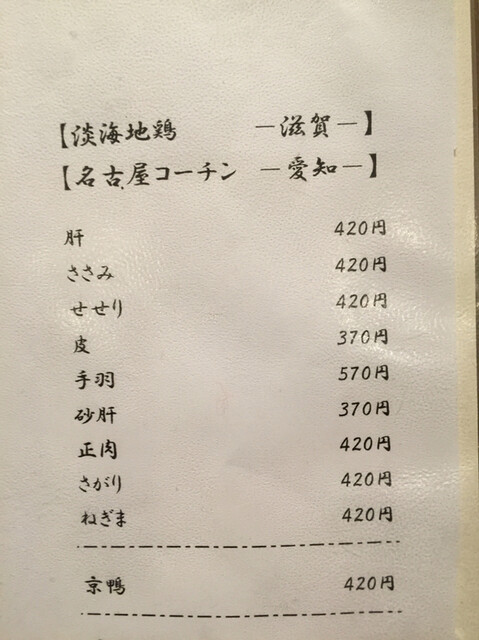 【淡海地鶏 ー滋賀ー】
【名古屋コーチン ー愛知ー】
肝 420円
ささみ 420円
せせり 420円
皮 370円
手羽 570円
砂肝 370円
正肉 420円
さがり 420円
ねぎま 420円
京鴨 420円